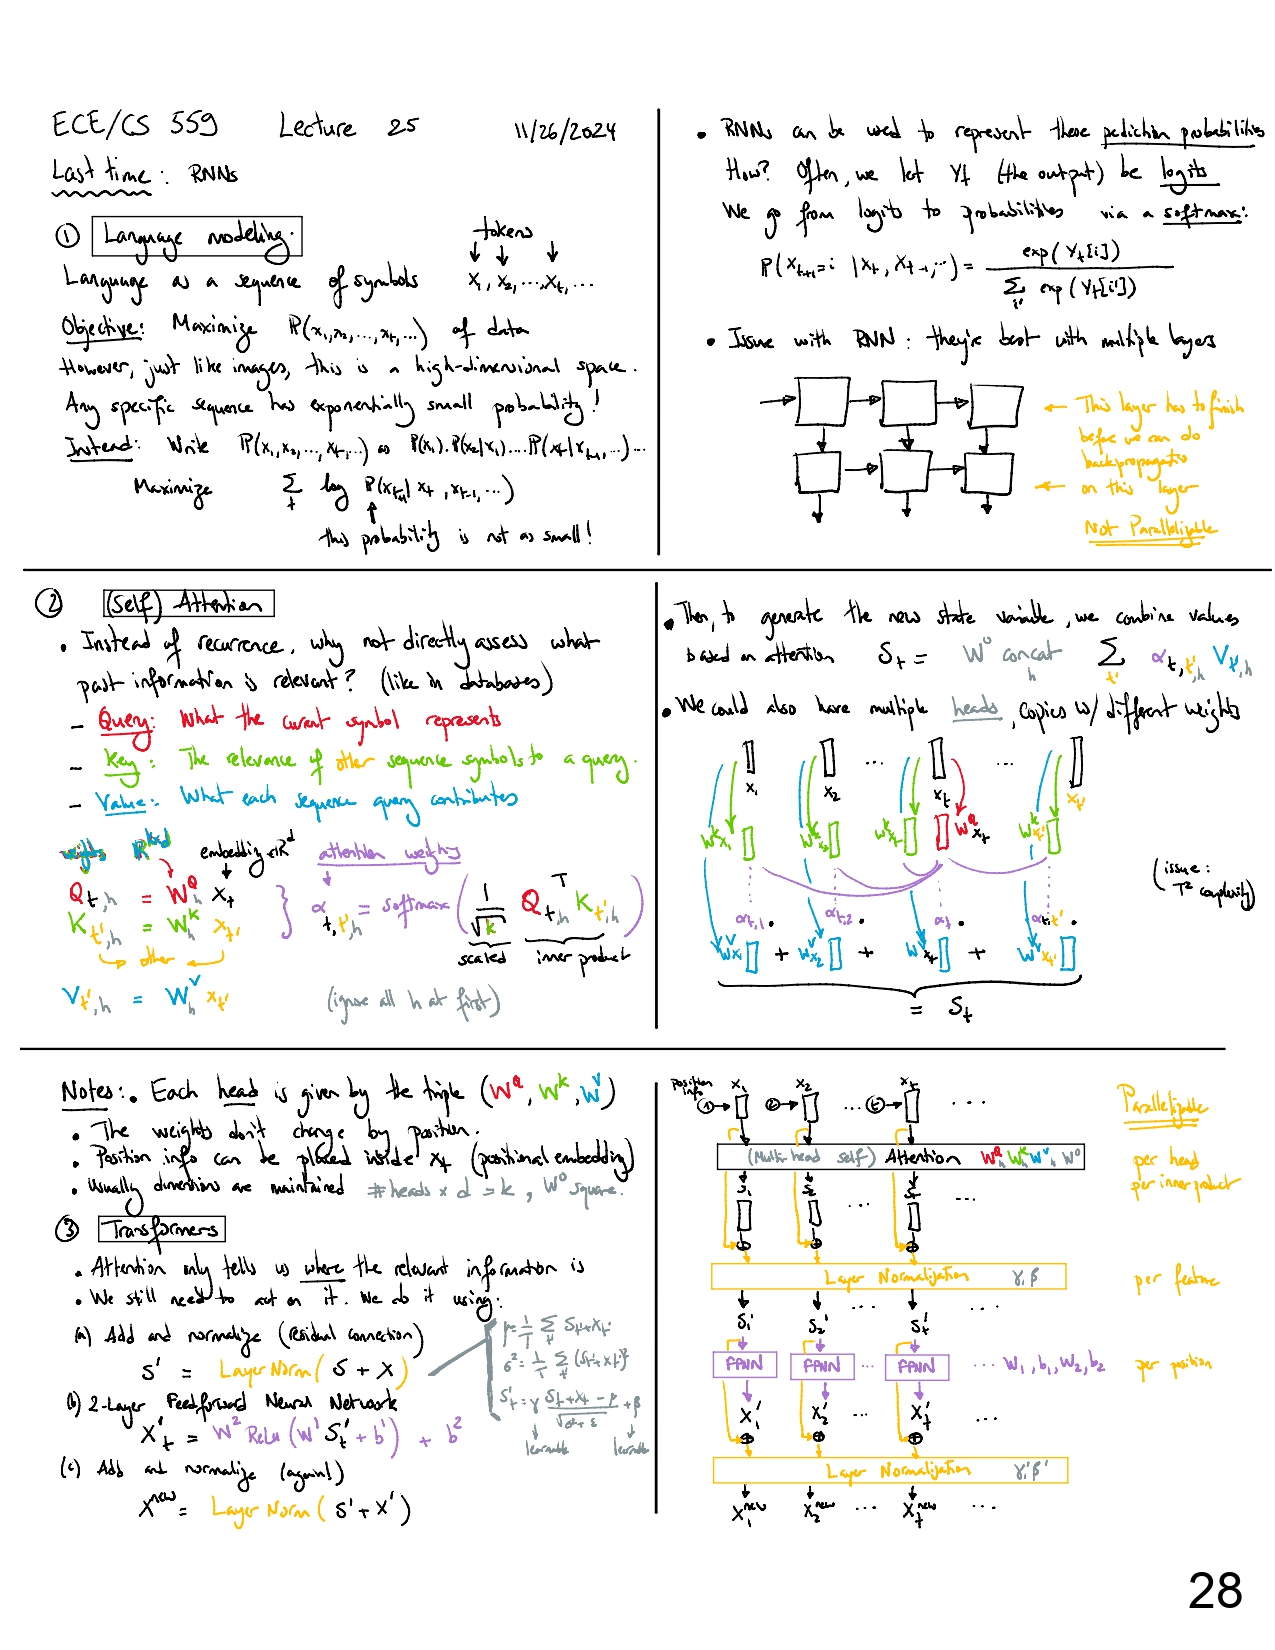 ECE/CS 559 Lecture 25 11/26/2024
Last time: RNNs
① Language modeling.
tokens
Language as a sequence of symbols x₁, x₂, ..., xₜ, ...
Objective: Maximize P(x₁, x₂, ..., xₜ, ...) of data
However, just like images, this is a high-dimensional space.
Any specific sequence has exponentially small probability!
Instead: Write P(x₁, x₂, ..., xₜ, ...) as P(x₁).P(x₂|x₁)....P(xₜ|xₜ₋₁, ...)...
Maximize Σₜ log P(xₜ₊₁| xₜ, xₜ₋₁, ...)
this probability is not as small!
• RNNs can be used to represent these prediction probabilities
How? Often, we let Yₜ (the output) be logits
We go from logits to probabilities via a softmax:
P(xₜ₊₁=i | xₜ, xₜ₋₁, ...) = exp(Yₜ[i]) / Σᵢ' exp(Yₜ[i'])
• Issue with RNN: they're best with multiple layers
← This layer has to finish
before we can do
backpropagation
← on this layer
Not Parallelizable
② (Self) Attention
• Instead of recurrence, why not directly assess what
past information is relevant? (like in databases)
- Query: What the current symbol represents
- Key: The relevance of other sequence symbols to a query.
- Value: What each sequence query contributes
weights ℝᵏˣᵈ embedding ∈ℝᵈ attention weights
Q_{t,h} = W^Q_h xₜ
K_{t',h} = W^K_h x_{t'}
other
α_{t,t',h} = softmax( 1/√k Q_{t,h}^T K_{t',h} )
scaled inner product
V_{t',h} = W^V_h x_{t'} (ignore all h at first)
• Then, to generate the new state variable, we combine values
based on attention Sₜ = W⁰ concat_h Σ_{t'} α_{t,t',h} V_{t',h}
• We could also have multiple heads, copies w/ different weights
x₁ x₂ ... xₜ ... x_{t'}
W^K x₁ W^K x₂ W^K xₜ W^Q xₜ W^K x_{t'}
(issue:
T² complexity)
α_{t,1} • α_{t,2} • α_{t} • α_{t,t'} •
W^V x₁ + W^V x₂ + W^V xₜ + W^V x_{t'}
= Sₜ
Notes: • Each head is given by the triple (W^Q, W^K, W^V)
• The weights don't change by position.
• Position info can be placed inside xₜ (positional embedding)
• Usually dimensions are maintained #heads × d = k, W⁰ square.
③ Transformers
• Attention only tells us where the relevant information is
• We still need to act on it. We do it using:
(a) Add and normalize (residual connection)
S' = LayerNorm( S + X )
μ = 1/T Σₜ' Sₜ'+Xₜ'
σ² = 1/T Σₜ' (Sₜ'+Xₜ')²
Sₜ' = γ (Sₜ+Xₜ - μ)/√(σ²+ε) + β
learnable learnable
(b) 2-Layer Feedforward Neural Network
X'ₜ = W² ReLu (W¹ S'ₜ + b¹) + b²
(c) Add and normalize (again!)
X^new = Layer Norm ( S' + X' )
Position info x₁ x₂ xₜ
① → ② → ... ⓣ → ...
Parallelizable
(Multi head self) Attention W^Q_h W^K_h W^V_h, W⁰
per head
per inner product
S₁ S₂ Sₜ
... ...
Layer Normalization γ, β
per feature
S₁' S₂' ... Sₜ' ...
FFNN FFNN ... FFNN ... W₁, b₁, W₂, b₂
per position
X₁' X₂' ... Xₜ' ...
Layer Normalization γ', β'
X₁^new X₂^new ... Xₜ^new ...
28